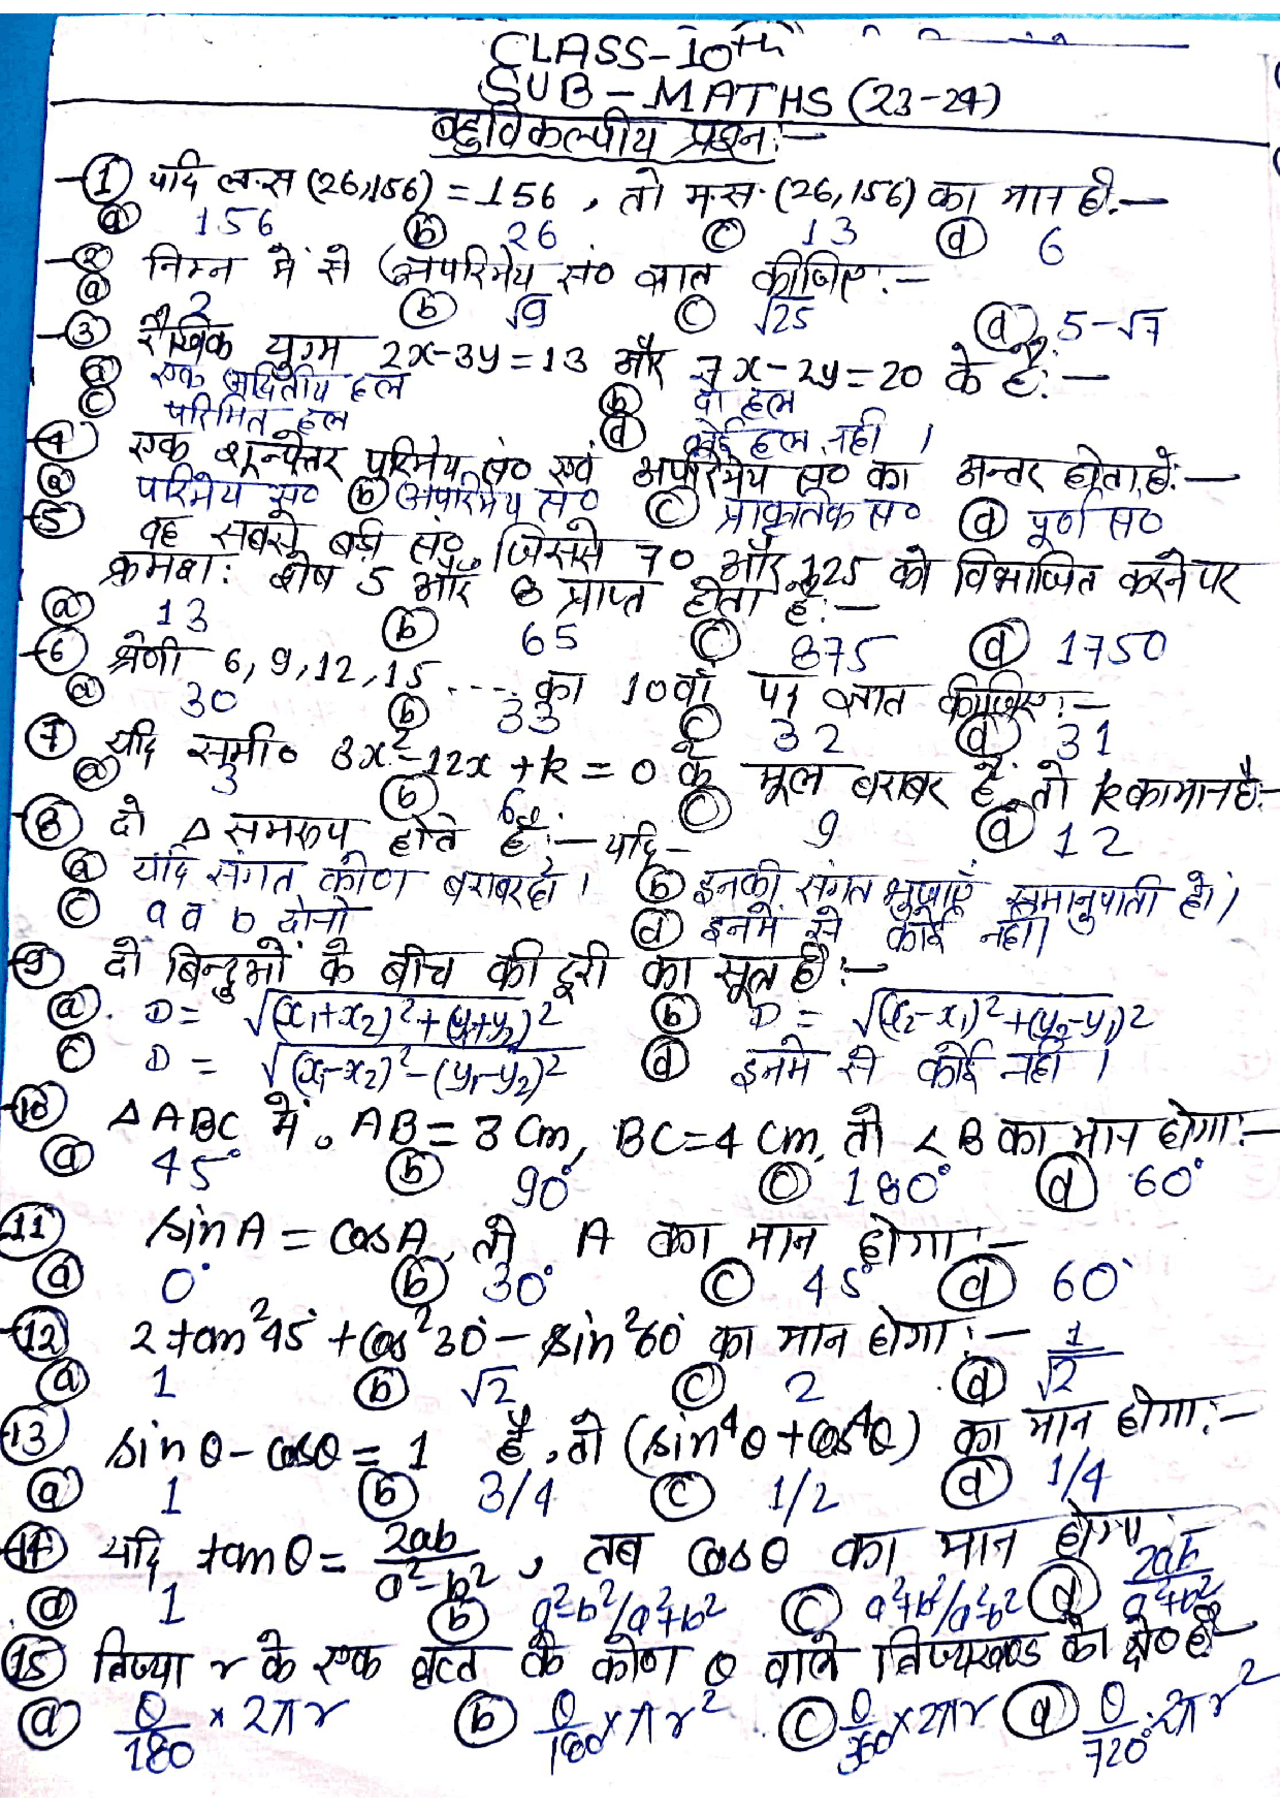 CLASS-10th
SUB-MATHS (23-24)
बहुविकल्पीय प्रश्न:-
① यदि ल.स (26,156) = 156, तो म.स. (26,156) का मान है:-
ⓐ 156 ⓑ 26 ⓒ 13 ⓓ 6
② निम्न में से अपरिमेय सं० ज्ञात कीजिए:-
ⓐ 2 ⓑ √9 ⓒ √25 ⓓ 5-√7
③ रैखिक युग्म 2x-3y=13 और 7x-2y=20 के हैं:-
ⓐ एक अद्वितीय हल ⓑ दो हल
ⓒ परिमित हल ⓓ कोई हल नहीं।
④ एक शून्येतर परिमेय सं० एवं अपरिमेय सं० का अन्तर होता है:-
ⓐ परिमेय सं० ⓑ अपरिमेय सं० ⓒ प्राकृतिक सं० ⓓ पूर्ण सं०
⑤ वह सबसे बड़ी सं० जिससे 70 और 125 को विभाजित करने पर
क्रमशः शेष 5 और 8 प्राप्त होता है:-
ⓐ 13 ⓑ 65 ⓒ 875 ⓓ 1750
⑥ श्रेणी 6, 9, 12, 15 .... का 10वाँ पद ज्ञात कीजिए:-
ⓐ 30 ⓑ 33 ⓒ 32 ⓓ 31
⑦ यदि समी० 3x²-12x+k=0 के मूल बराबर हैं, तो k का मान है:-
ⓐ 3 ⓑ 6 ⓒ 9 ⓓ 12
⑧ दो Δ समरूप होते हैं:- यदि-
ⓐ यदि संगत कोण बराबर हो। ⓑ इनकी संगत भुजाएँ समानुपाती हो।
ⓒ a व b दोनो ⓓ इनमे से कोई नही।
⑨ दो बिन्दुओं के बीच की दूरी का सूत्र है:-
ⓐ D = √(x₁+x₂)²+(y₁+y₂)² ⓑ D = √(x₂-x₁)²+(y₂-y₁)²
ⓒ D = √(x₁-x₂)²-(y₁-y₂)² ⓓ इनमे से कोई नहीं।
⑩ ΔABC में. AB=3 Cm, BC=4 Cm, तो ∠B का मान होगा:-
ⓐ 45° ⓑ 90° ⓒ 180° ⓓ 60°
⑪ sinA = cosA, तो A का मान होगा:-
ⓐ 0° ⓑ 30° ⓒ 45° ⓓ 60°
⑫ 2tan²45°+cos²30°-sin²60° का मान होगा:-
ⓐ 1 ⓑ √2 ⓒ 2 ⓓ 1/√2
⑬ sinθ-cosθ=1 है, तो (sin⁴θ+cos⁴θ) का मान होगा:-
ⓐ 1 ⓑ 3/4 ⓒ 1/2 ⓓ 1/4
⑭ यदि tanθ = 2ab/a²-b², तब cosθ का मान होगा
ⓐ 1 ⓑ a²-b²/a²+b² ⓒ a²+b²/a²-b² ⓓ 2ab/a²+b²
⑮ त्रिज्या r के एक वृत्त के कोण θ वाले त्रिज्यखण्ड का क्षे० है-
ⓐ θ/180 × 2πr ⓑ θ/180 × πr² ⓒ θ/360 × 2πr ⓓ θ/720° × 2πr²